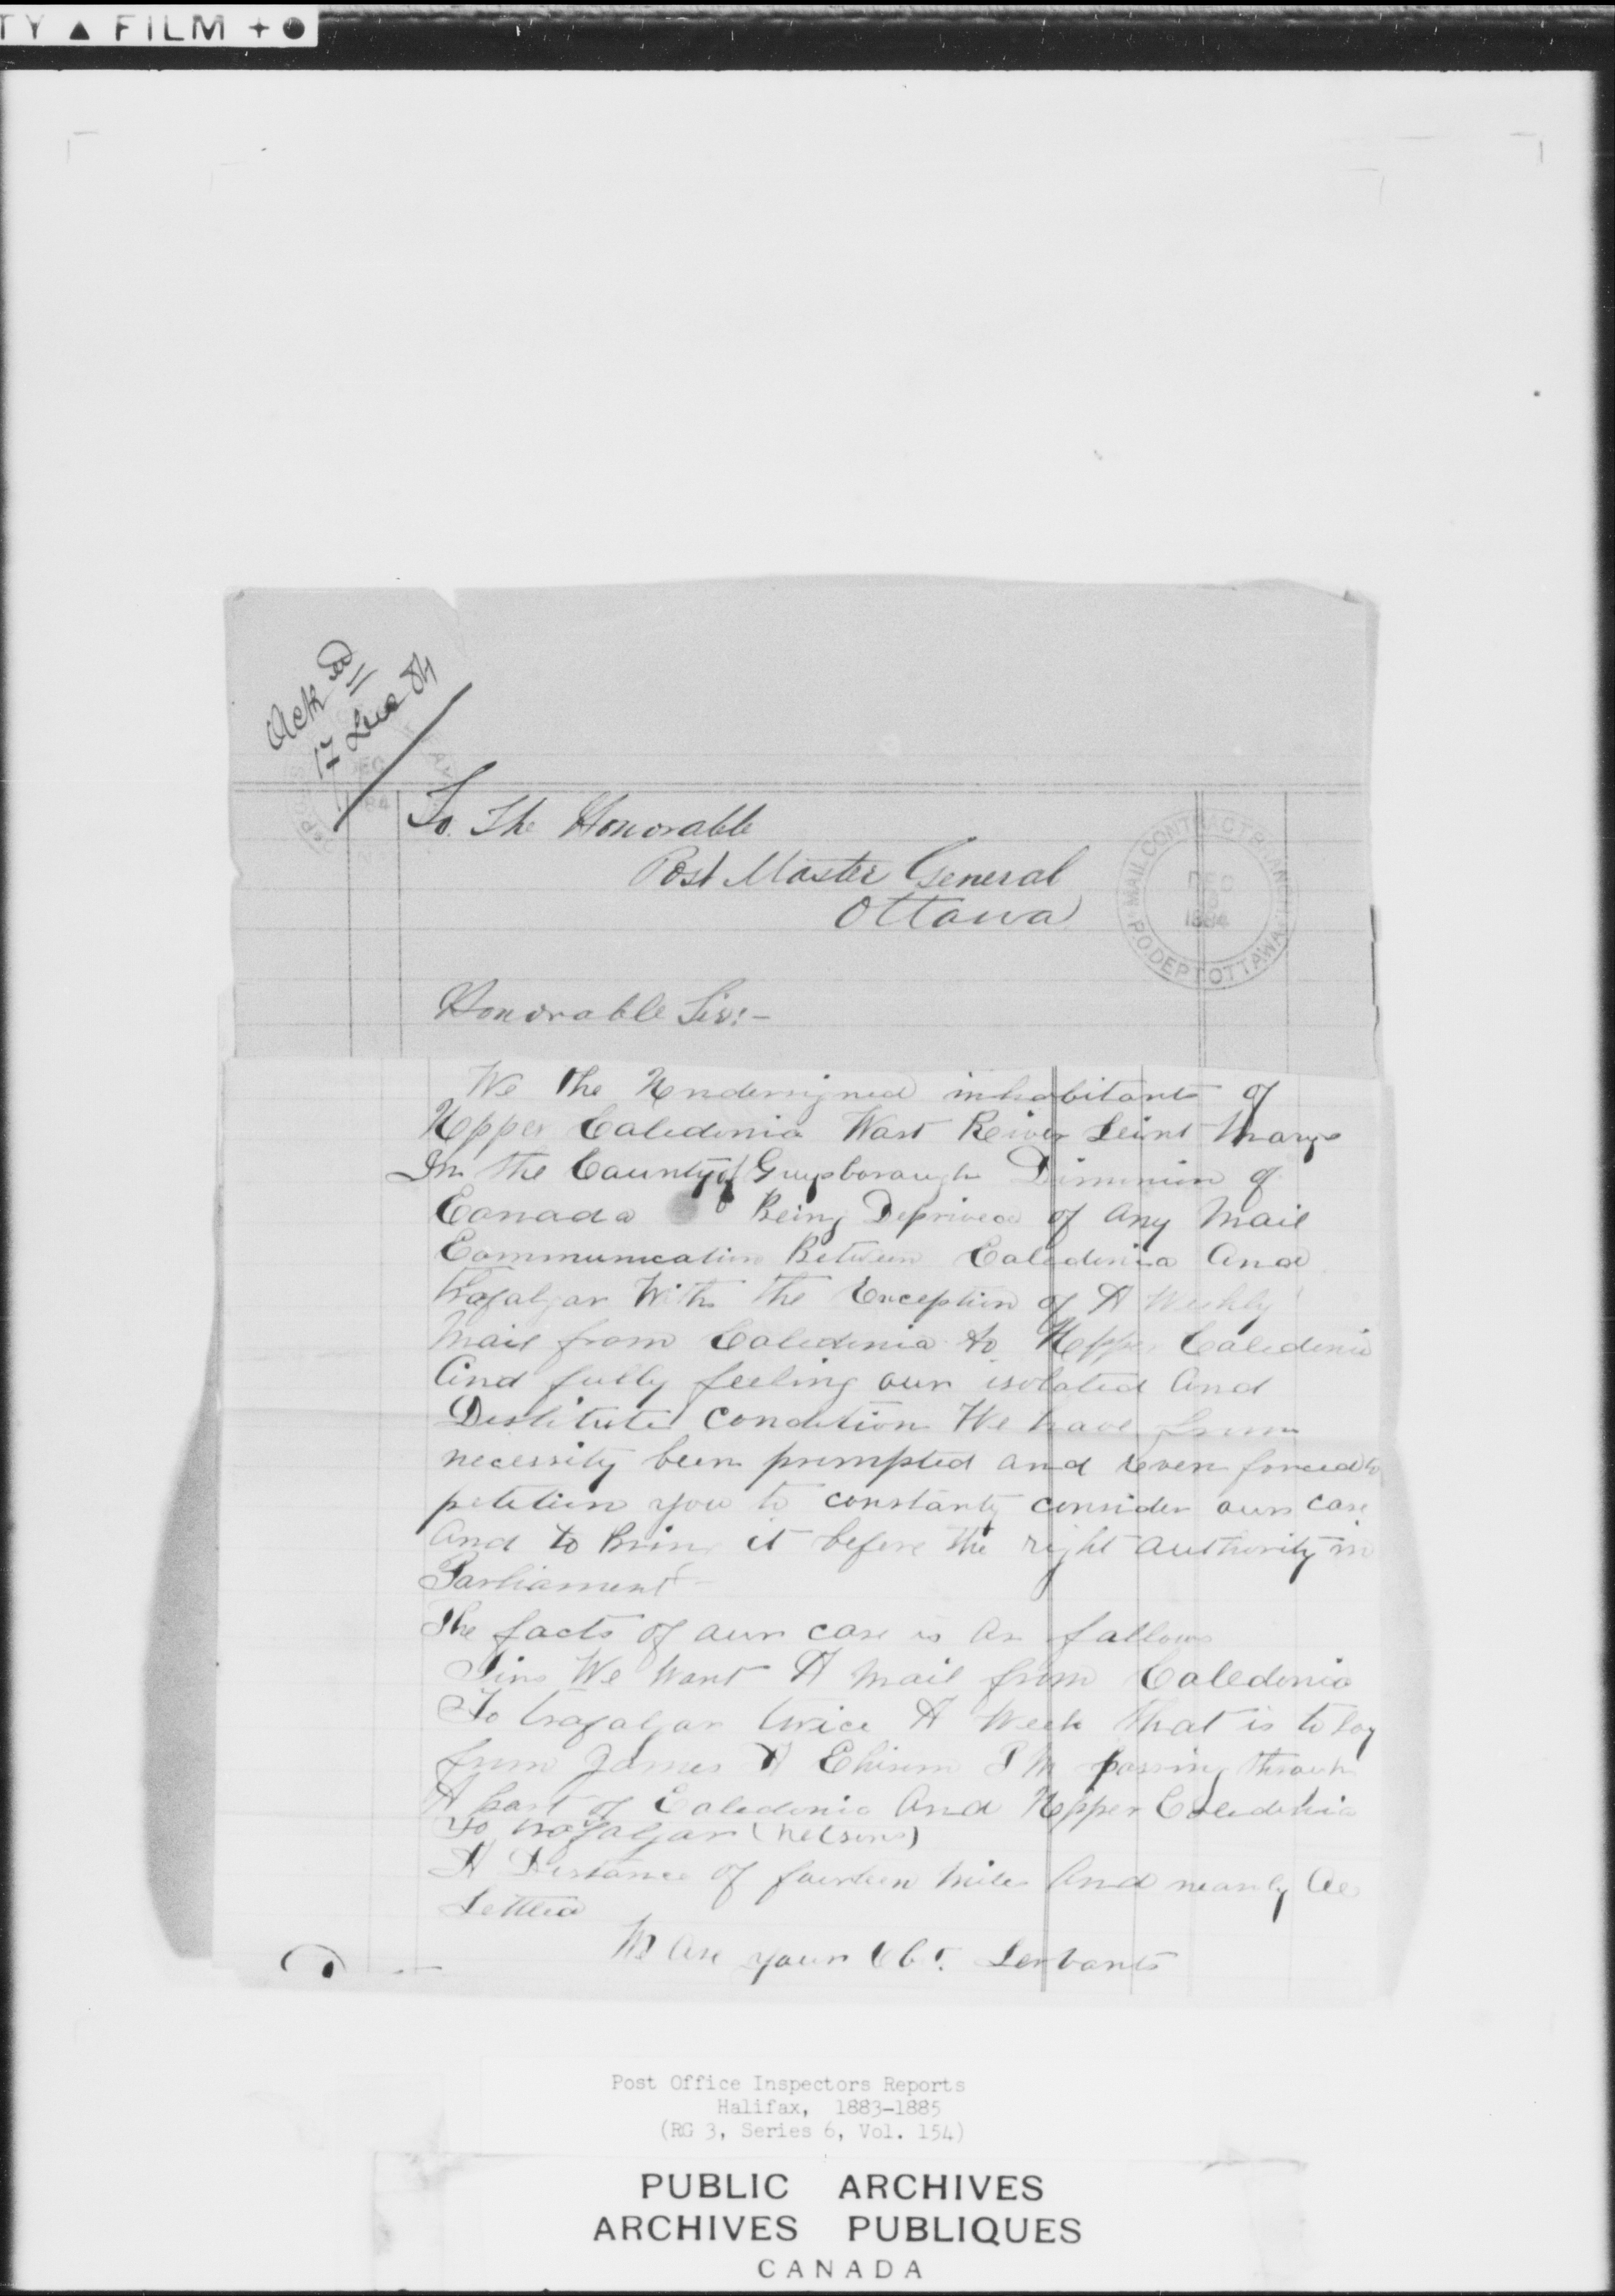 TY ▲ FILM + ●
Ack
17 Dec 84
To. The Honorable
Post Master General
Ottawa
MAIL CONTRACT
DEC
1884
P.O. DEPT OTTAWA
Honorable Sir:-
We the Undersigned inhabitants of
Upper Caledonia West River Saint Marys
In the County of Guysborough Dominion of
Canada Being Deprived of Any Mail
Communication Between Caledonia And
Trafalgar With the Exception of A Weekly
Mail from Caledonia to Upper Caledonia
And fully feeling our isolated And
Destitute Condition We have from
necessity been prompted and even forced to
petition you to constantly consider our case
And to Bring it before the right authority in
Parliament-
The facts of our case is As follows
We Want A Mail from Caledonia
To Trafalgar twice A Week that is to Say
from James A Chisim P M passing through
A part of Caledonia And Upper Caledonia
To Trafalgar (Nelsons)
A Distance of fourteen Miles And nearly All
Settled
We Are your Obt. Servants
Post Office Inspectors Reports
Halifax, 1883-1885
(RG 3, Series 6, Vol. 154)
PUBLIC ARCHIVES
ARCHIVES PUBLIQUES
CANADA